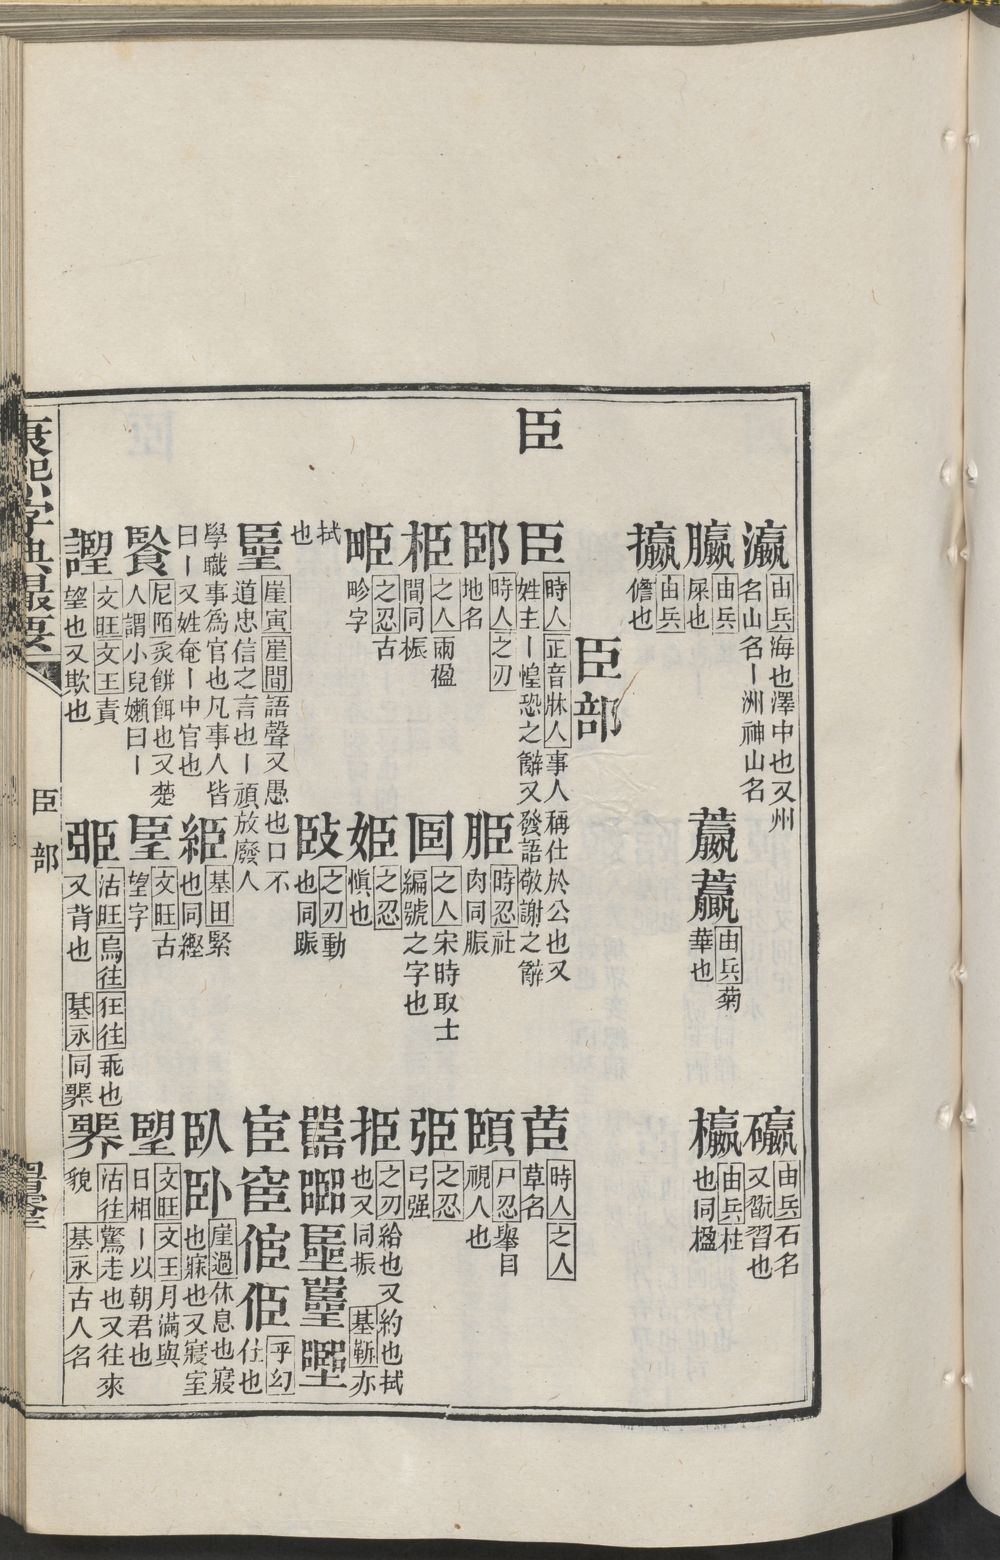 瀛 由兵 海也澤中也又州名山名丨洲神山名
礦 由兵 石名又翫習也
臝 由兵 屎也
蠃 由兵 菊華也
欙 由兵 柱也同楹
攍 由兵 儋也
臣部
臣
臣 時人 正音牀人 事人稱仕於公也又姓主丨惶恐之辭又發語敬謝之辭
茞 時人 之人 草名
郾 時人 之刃 地名
脜 時忍 社肉同脤
頣 尸忍 舉目視人也
栕 之人 兩楹間同桭
之人 宋時取士編號之字也
弡 之忍 弓强
畖 之忍 古畛字
姖 之忍 慎也
挋 之刃 給也又約也拭也又同振 基靳 亦拭也
之刃 動也同賑
嚚 崖寅 崖間 語聲又愚也口不道忠信之言也丨頑放廢人
宦 乎幻 仕也學職事爲官也凡事人皆曰丨又姓奄丨中官也
緊 基田 緊也同緪
臥 卧 崖過 休息也寢也寐也又寢室
尼陌 炙餅餌也又楚人謂小兒嬾曰丨
文旺 古望字
朢 文旺 文王 月滿與日相丨以朝君也
文旺 文王 責望也又欺也
沽旺 烏往 狂往 乖也又背也 基永 同臩
臩 沽往 驚走也又往來貌 基永 古人名
康熙字典最要
臣部